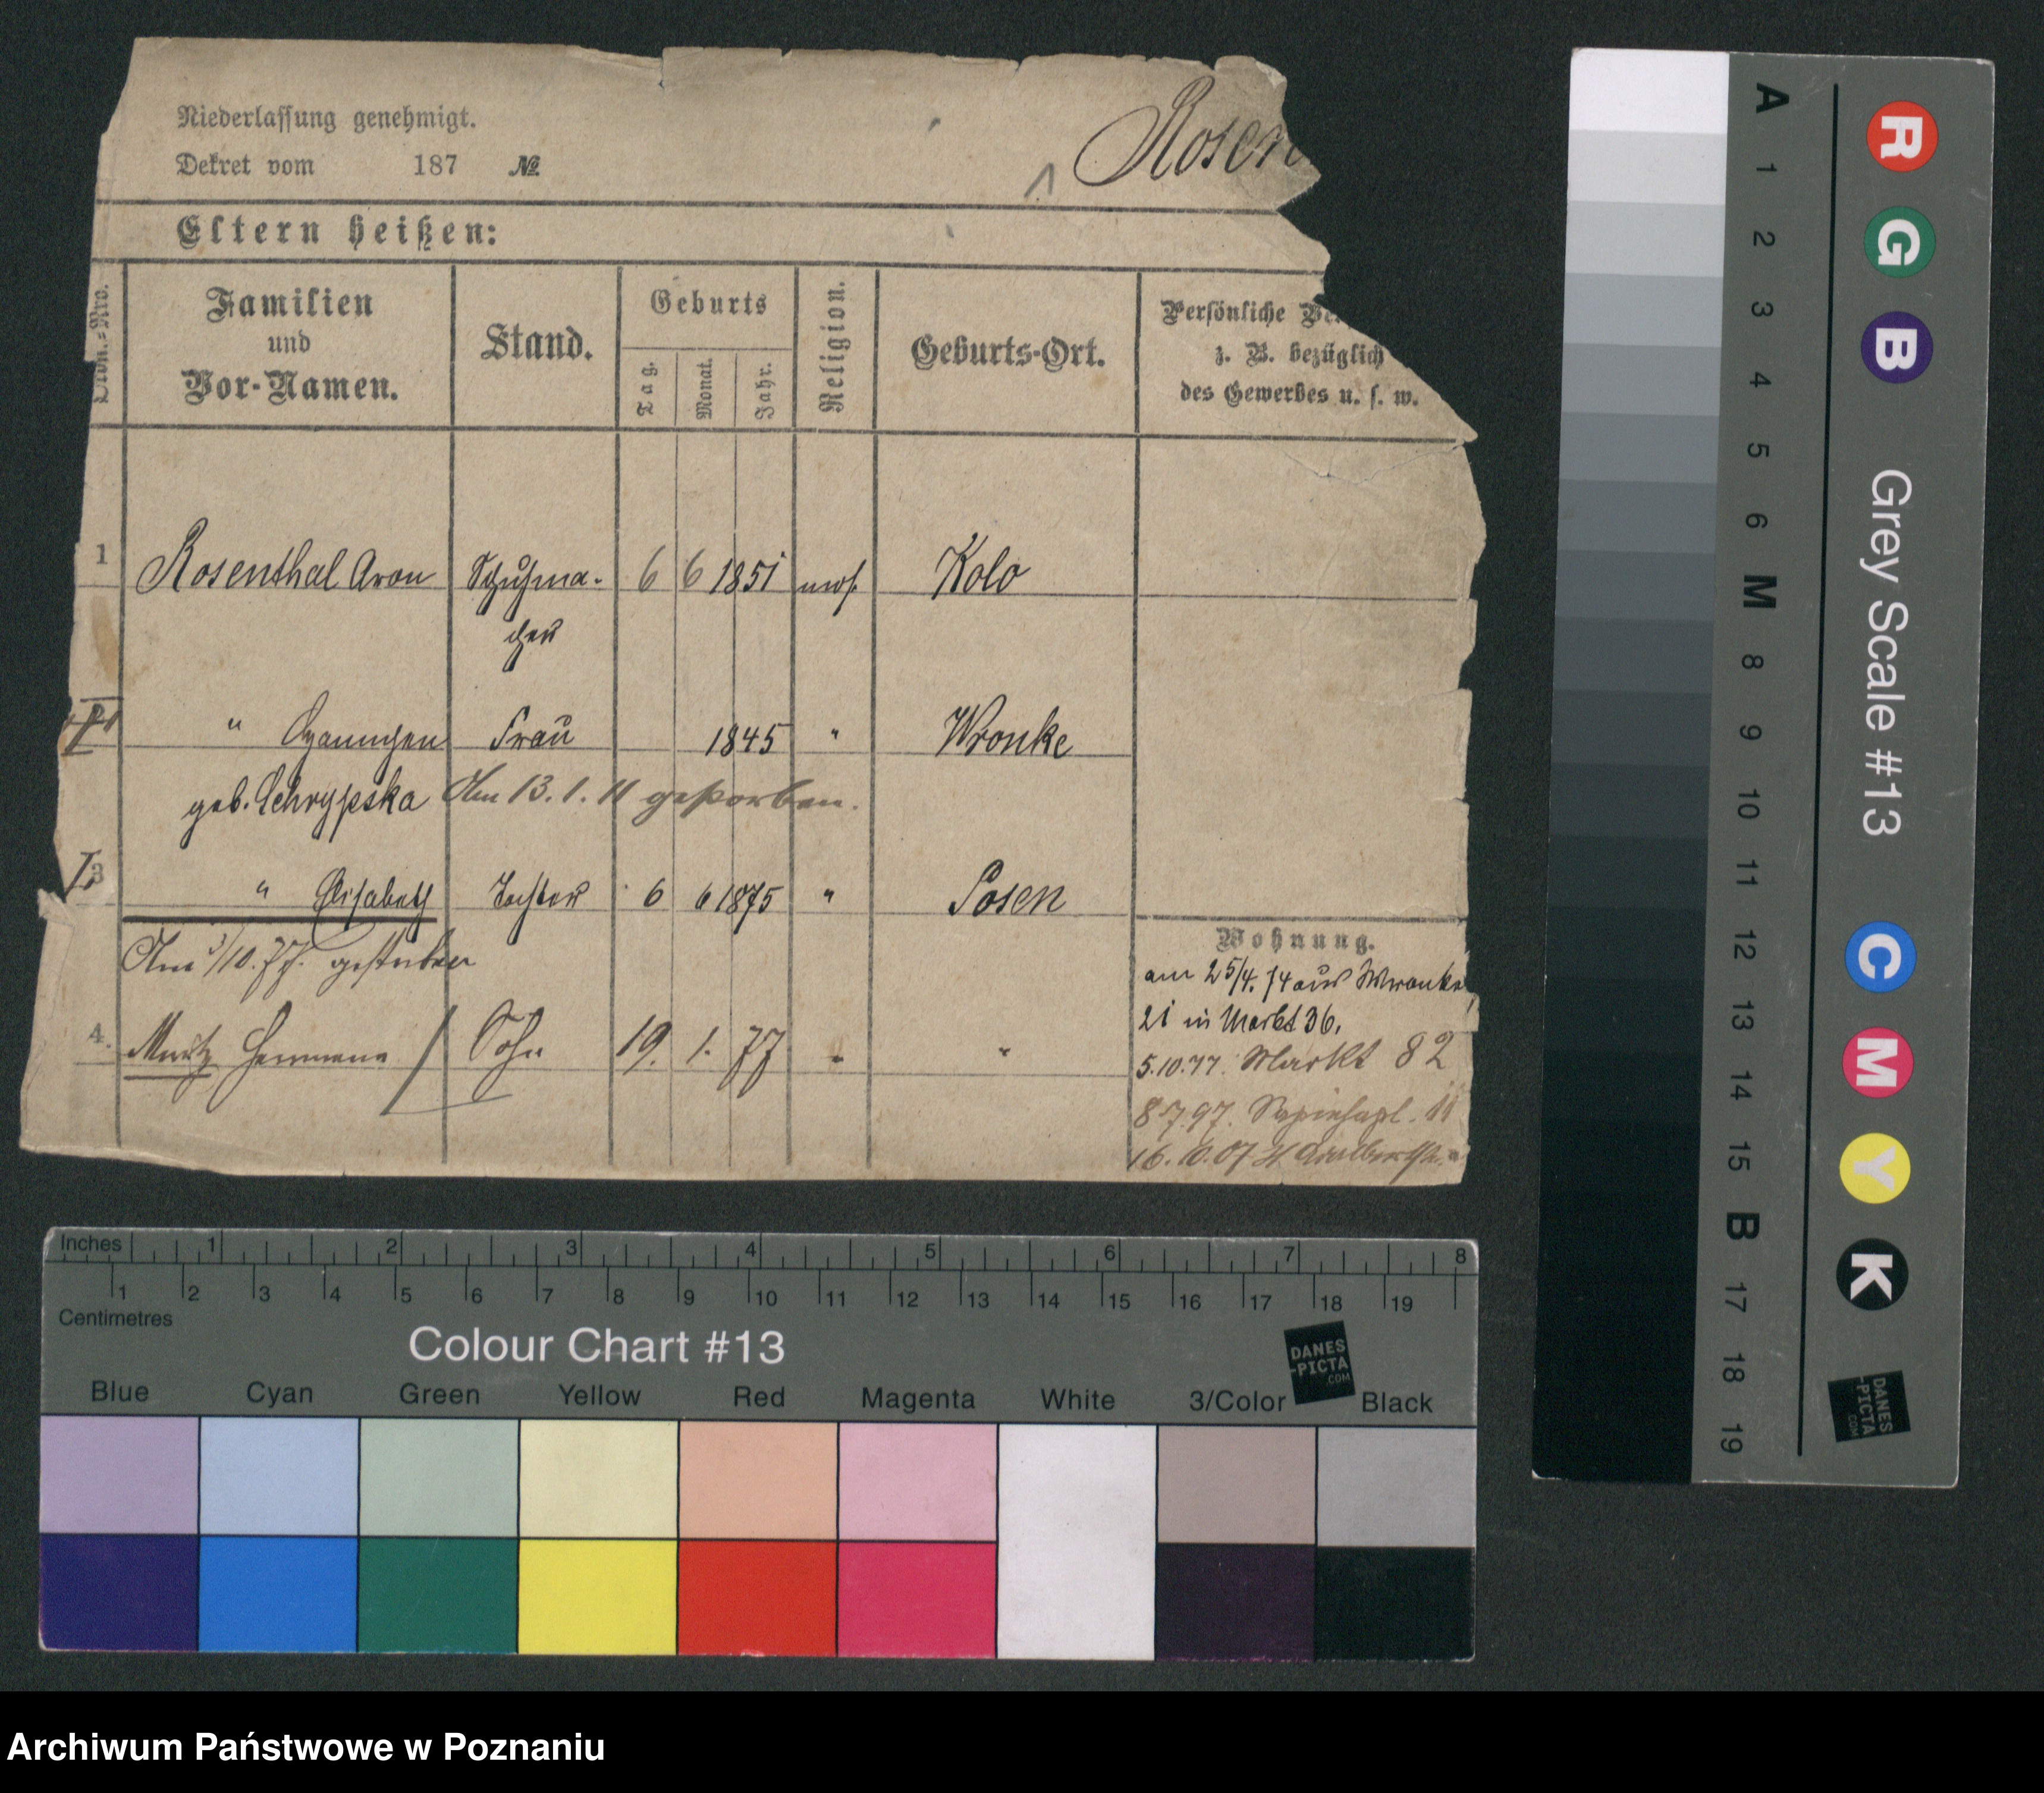 Niederlassung genehmigt.
Dekret vom 187 №
Rosen
Eltern heißen:
Ordn.-Nro.
Familien
und
Vor-Namen.
Stand.
Geburts
Tag.
Monat.
Jahr.
Religion.
Geburts-Ort.
Persönliche
z. B. bezüglich
des Gewerbes u. s. w.
1 Rosenthal Aron Schuhma- 6 6 1851 mos. Kolo
cher
" Frau 1845 " Wronke
geb. Am 13.1.11 gestorben.
3 " Elisabeth Tochter 6 6 1875 " Posen
Am 3/10.77. gestorben
4. Moritz Hermann Sohn 19. 1. 77 " "
Wohnung.
am 25/4.74 aus Wronke
21 in Markt 36.
5.10.77. Markt 82
8.7.97. 11
16.10.07
Inches 1 2 3 4 5 6 7 8
1 2 3 4 5 6 7 8 9 10 11 12 13 14 15 16 17 18 19
Centimetres
Colour Chart #13
DANES
-PICTA
.COM
Blue Cyan Green Yellow Red Magenta White 3/Color Black
A 1 2 3 4 5 6 M 8 9 10 11 12 13 14 15 B 17 18 19
R G B
Grey Scale #13
C M Y K
DANES
-PICTA
.COM
Archiwum Państwowe w Poznaniu